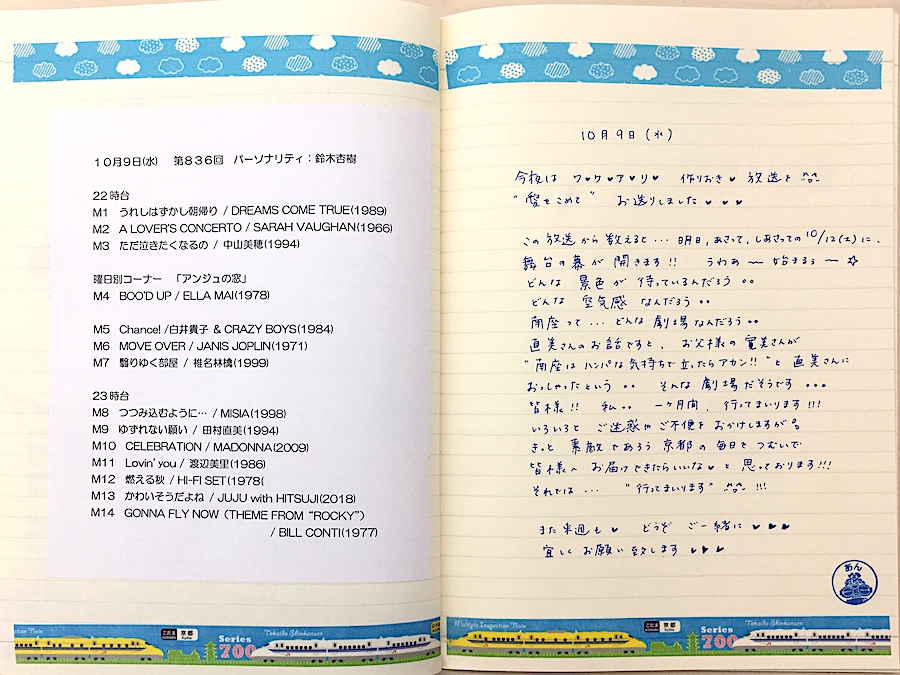 10月9日(水) 第836回 パーソナリティ:鈴木杏樹
22時台
M1 うれしはずかし朝帰り / DREAMS COME TRUE(1989)
M2 A LOVER'S CONCERTO / SARAH VAUGHAN(1966)
M3 ただ泣きたくなるの / 中山美穂(1994)
曜日別コーナー 「アンジュの窓」
M4 BOO'D UP / ELLA MAI(1978)
M5 Chance! /白井貴子 & CRAZY BOYS(1984)
M6 MOVE OVER / JANIS JOPLIN(1971)
M7 翳りゆく部屋 / 椎名林檎(1999)
23時台
M8 つつみ込むように… / MISIA(1998)
M9 ゆずれない願い / 田村直美(1994)
M10 CELEBRATION / MADONNA(2009)
M11 Lovin' you / 渡辺美里(1986)
M12 燃える秋 / HI-FI SET(1978(
M13 かわいそうだよね / JUJU with HITSUJI(2018)
M14 GONNA FLY NOW (THEME FROM "ROCKY")
/ BILL CONTI(1977)
ction Train こだま KODAMA 京都 Kyoto Series 700 Tokaido Shinkansen
10月9日(水)
今夜は ワ♥ケ♥ア♥リ♥ 作りおき♥放送を
"愛をこめて" お送りしました ♥ ♥ ♥
この放送から数えると… 明日,あさって,しあさっての10/12(土)に、
舞台の幕が開きます!! うわぁ〜 始まるぅ〜☆
どんな 景色が 待っているんだろう。。
どんな 空気感 なんだろう。。
南座って… どんな劇場なんだろう。。
直美さんのお話ですと、お父様の寛美さんが
"南座はハンパな気持ちで立ったらアカン!!"と 直美さんに
おっしゃったという。。 そんな劇場だそうです。。。
皆様!! 私。。 一ヶ月間、行ってまいります!!!
いろいろと ご迷惑やご不便をおかけしますが。
きっと 素敵であろう 京都の毎日をつむいで
皆様へ お届けできたらいいな♥と 思っております!!!
それでは… "行ってまいります" !!!
また来週も♥ どうぞ ご一緒に♥♥♥
宜しくお願い致します♥♥♥
あん
Multiple Inspection Train こだま KODAMA 京都 Kyoto Series 700 Tokaido Shinkansen